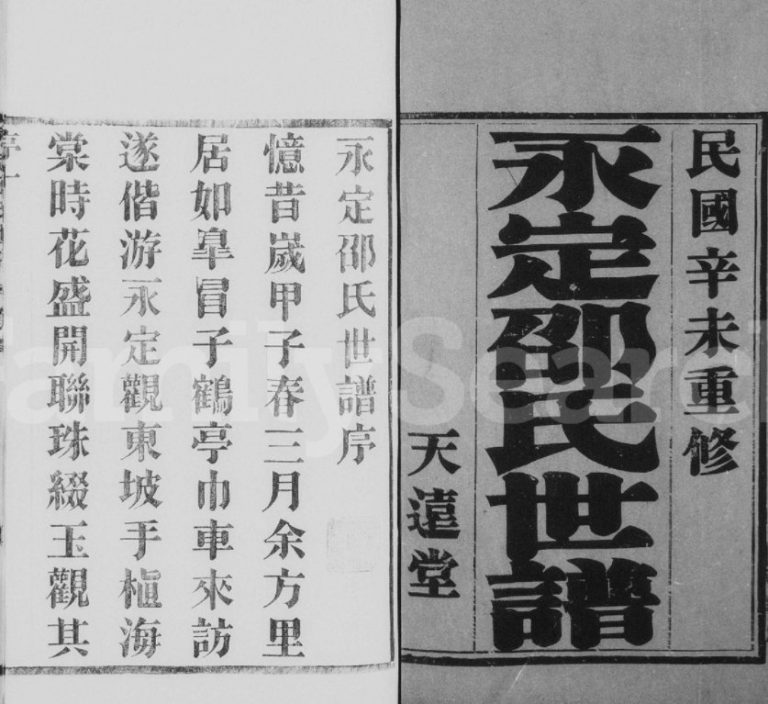 民國辛未重修
永定邵氏世譜
天遠堂
永定邵氏世譜序
憶昔歲甲子春三月余方里
居如臯冒子鶴亭巾車來訪
遂偕游永定觀東坡手植海
棠時花盛開聯珠綴玉觀其
序一
FamilySearch